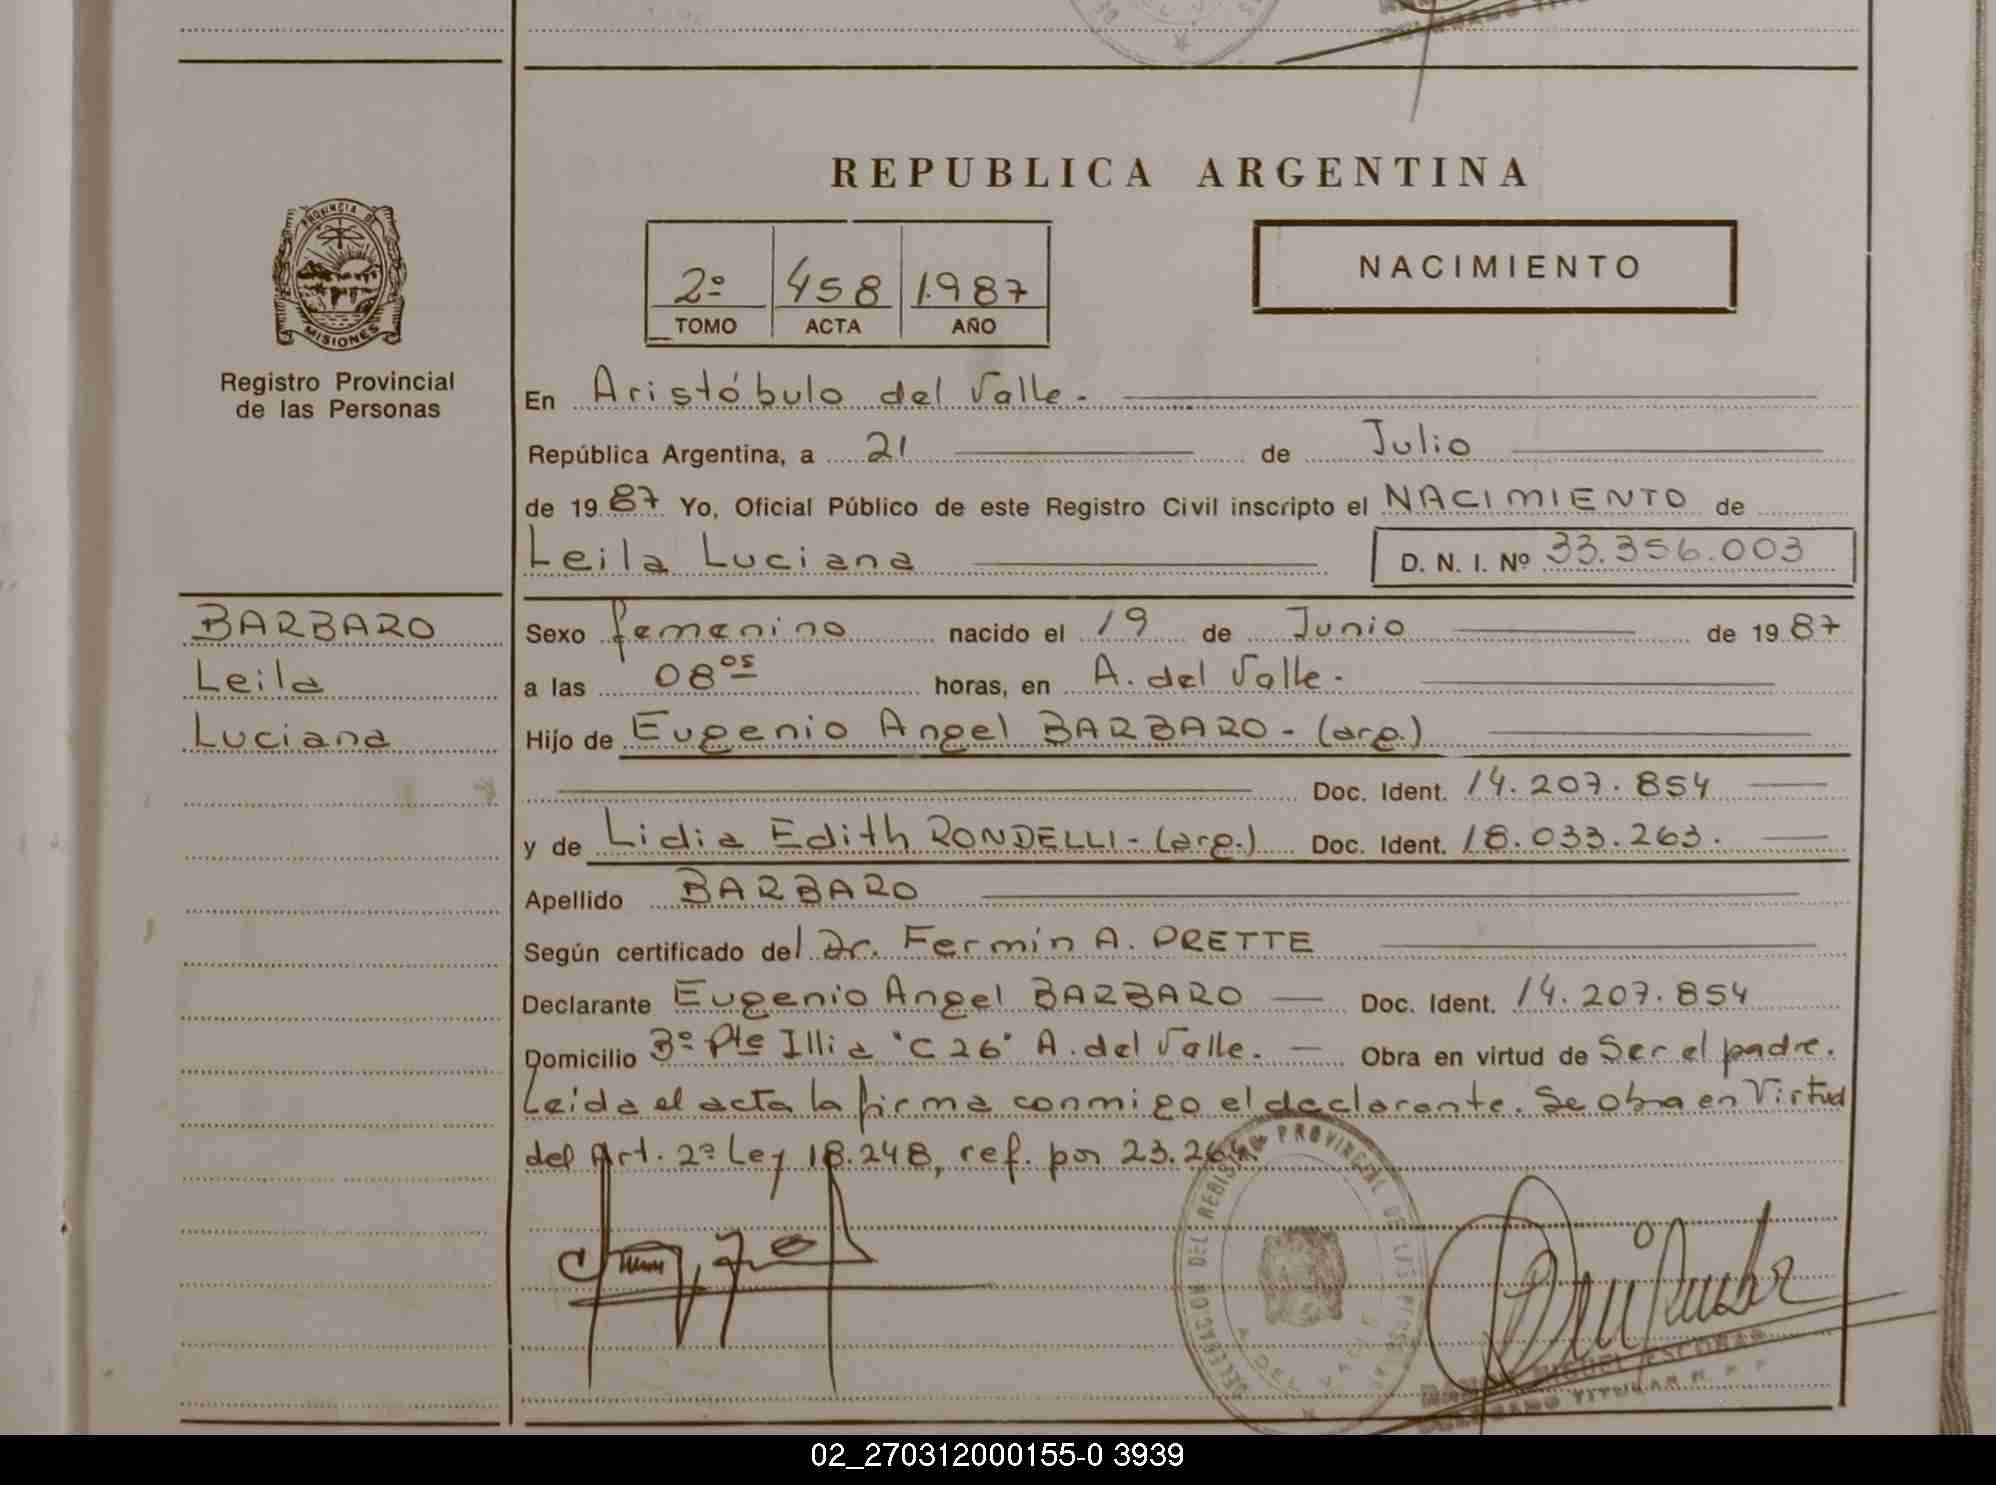 REPUBLICA ARGENTINA
PROVINCIA DE
MISIONES
Registro Provincial
de las Personas
2º 458 1987
TOMO ACTA AÑO
NACIMIENTO
En Aristóbulo del Valle.-
República Argentina, a 21 de Julio
de 1987 Yo, Oficial Público de este Registro Civil inscripto el NACIMIENTO de
Leila Luciana D. N. I. Nº 33.356.003
BARBARO
Leila
Luciana
Sexo femenino nacido el 19 de Junio de 1987
a las 08 05 horas, en A. del Valle.
Hijo de Eugenio Angel BARBARO - (arg.)
Doc. Ident. 14.207.854
y de Lidia Edith RONDELLI - (arg.) Doc. Ident. 18.033.263.
Apellido BARBARO
Según certificado del Dr. Fermín A. PRETTE
Declarante Eugenio Angel BARBARO Doc. Ident. 14.207.854
Domicilio Bº Pte Illia "C 26" A. del Valle. Obra en virtud de Ser el padre.
Leída el acta la firma conmigo el declarante. Se obra en Virtud
del Art. 2º Ley 18.248, ref. por 23.264.
DELEGACION DEL REGISTRO PROVINCIAL DE LAS PERSONAS
A. DEL VALLE
MIGUEL ESCOBAR
TITULAR R. P. P.
02_270312000155-0 3939